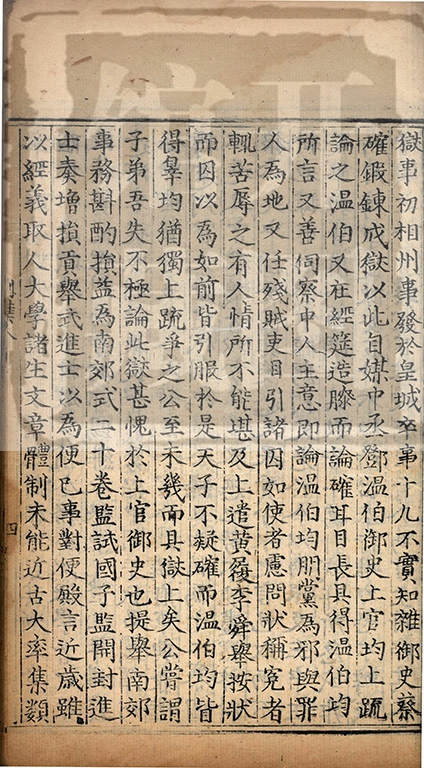 獄事初相州事發於皇城卒事十九不實知雜御史蔡
確鍛鍊成獄以此自媒中丞鄧溫伯御史上官均上疏
論之溫伯又在經筵造膝而論確耳目長具得溫伯均
所言又善伺察中人主意即論溫伯均朋黨為邪與罪
人為地又任殘賊吏目引諸囚如使者慮問狀稱冤者
輒苦辱之有人情所不能堪及上遣黃履李舜舉按狀
而囚以為如前皆引服於是天子不疑確而溫伯均皆
得辠均猶獨上疏爭之公至未幾而具獄上矣公嘗謂
子弟吾失不極論此獄甚愧於上官御史也提舉南郊
事務斟酌損益為南郊式二十卷監試國子監開封進
士奏增損貢舉武進士以為便已事對便殿言近歲雖
以經義取人大學諸生文章體制未能近古大率集類
集
四